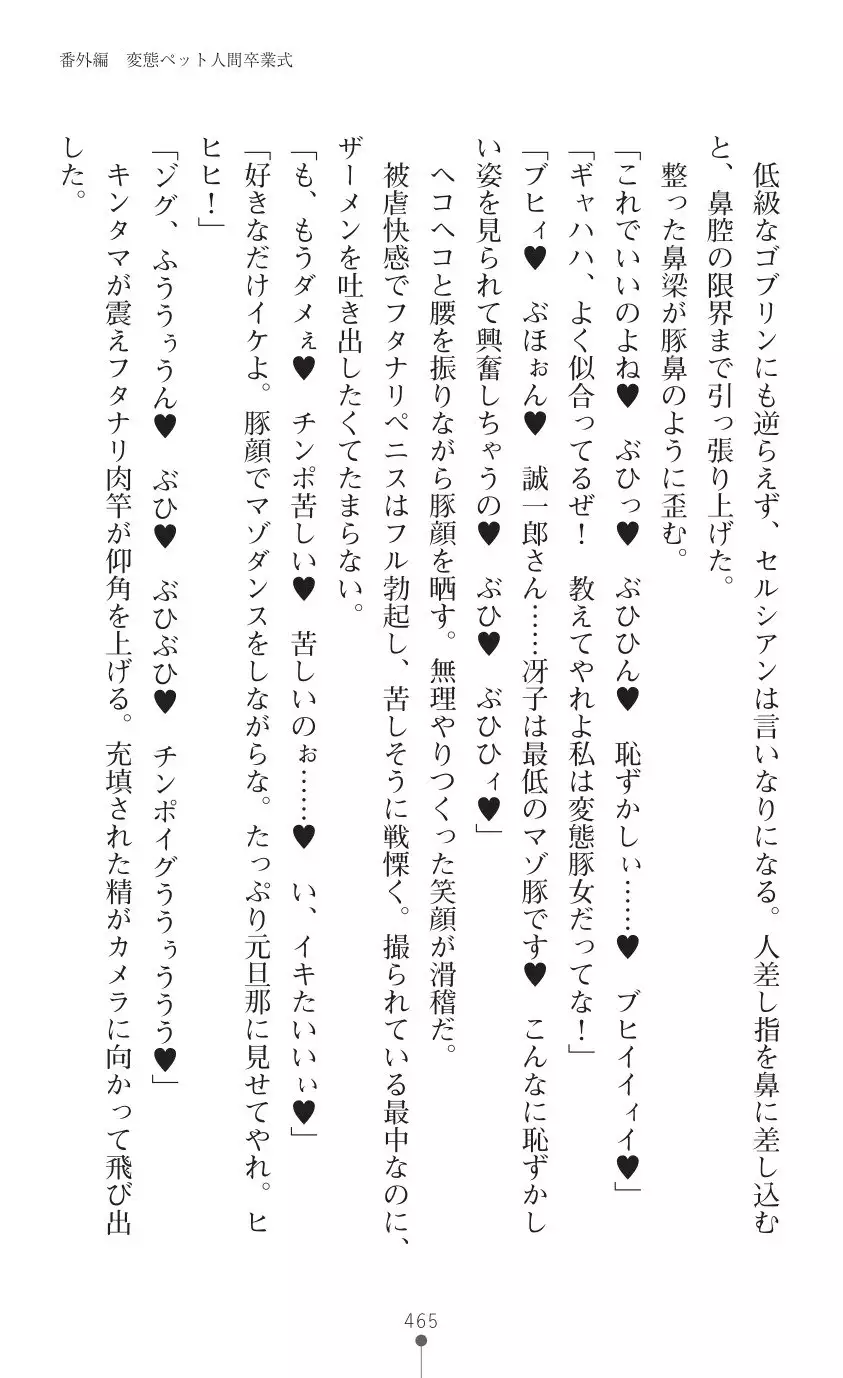 番外編　変態ペット人間卒業式
　低級なゴブリンにも逆らえず、セルシアンは言いなりになる。人差し指を鼻に差し込む
と、鼻腔の限界まで引っ張り上げた。
　整った鼻梁が豚鼻のように歪む。
「これでいいのよね♥　ぶひっ♥　ぶひひん♥　恥ずかしぃ……♥　ブヒイイィイ♥」
「ギャハハ、よく似合ってるぜ！　教えてやれよ私は変態豚女だってな！」
「ブヒィ♥　ぶほぉん♥　誠一郎さん……冴子は最低のマゾ豚です♥　こんなに恥ずかし
い姿を見られて興奮しちゃうの♥　ぶひ♥　ぶひひィ♥」
　ヘコヘコと腰を振りながら豚顔を晒す。無理やりつくった笑顔が滑稽だ。
　被虐快感でフタナリペニスはフル勃起し、苦しそうに戦慄く。撮られている最中なのに、
ザーメンを吐き出したくてたまらない。
「も、もうダメぇ♥　チンポ苦しい♥　苦しいのぉ……♥　い、イキたいいぃ♥」
「好きなだけイケよ。豚顔でマゾダンスをしながらな。たっぷり元旦那に見せてやれ。ヒ
ヒヒ！」
「ゾグ、ふううぅうん♥　ぶひ♥　ぶひぶひ♥　チンポイグううぅううう♥」
　キンタマが震えフタナリ肉竿が仰角を上げる。充填された精がカメラに向かって飛び出
した。
465